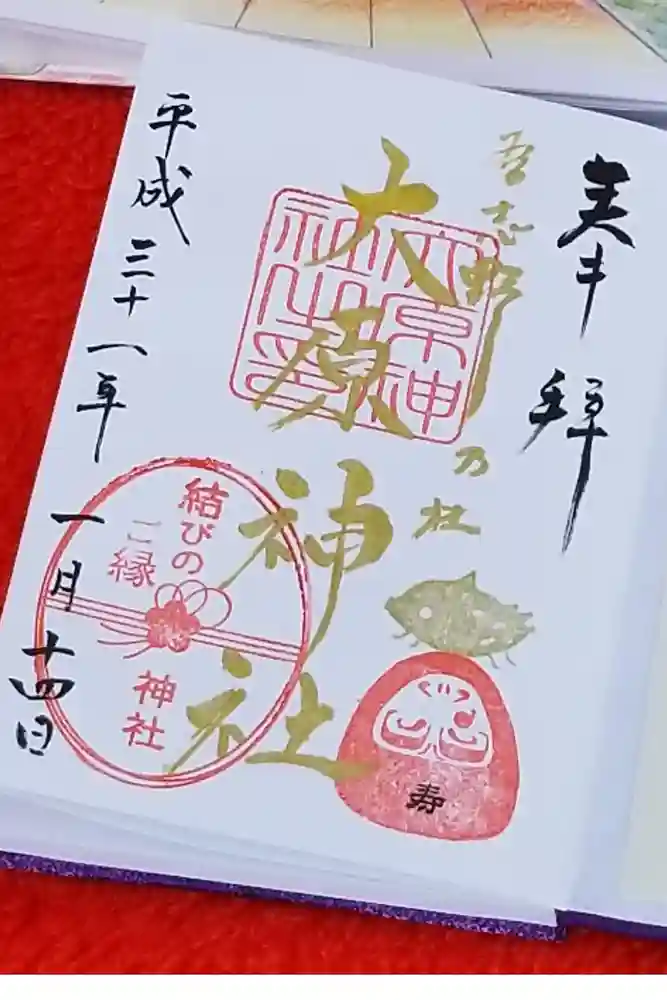 奉拝
習志野乃杜
大原神社
大原神
社之印
結びの
ご縁
神社
寿
平成三十一年一月十四日